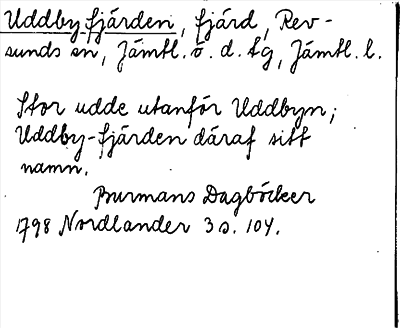 Uddby-fjärden, fjärd, Rev-
sunds sn, Jämtl. ö. d. tg, Jämtl. l.
Stor udde utanför Uddbyn;
Uddby-fjärden däraf sitt
namn.
Burmans Dagböcker
1798 Nordlander 3 s. 104.